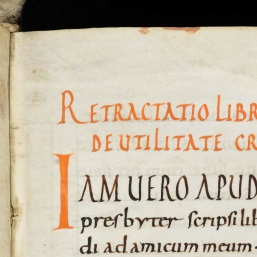 RETRACTATIO LIBR
DE UTILITATE CR
IAM UERO APUD
presbyter scripsi lib
di ad amicum meum